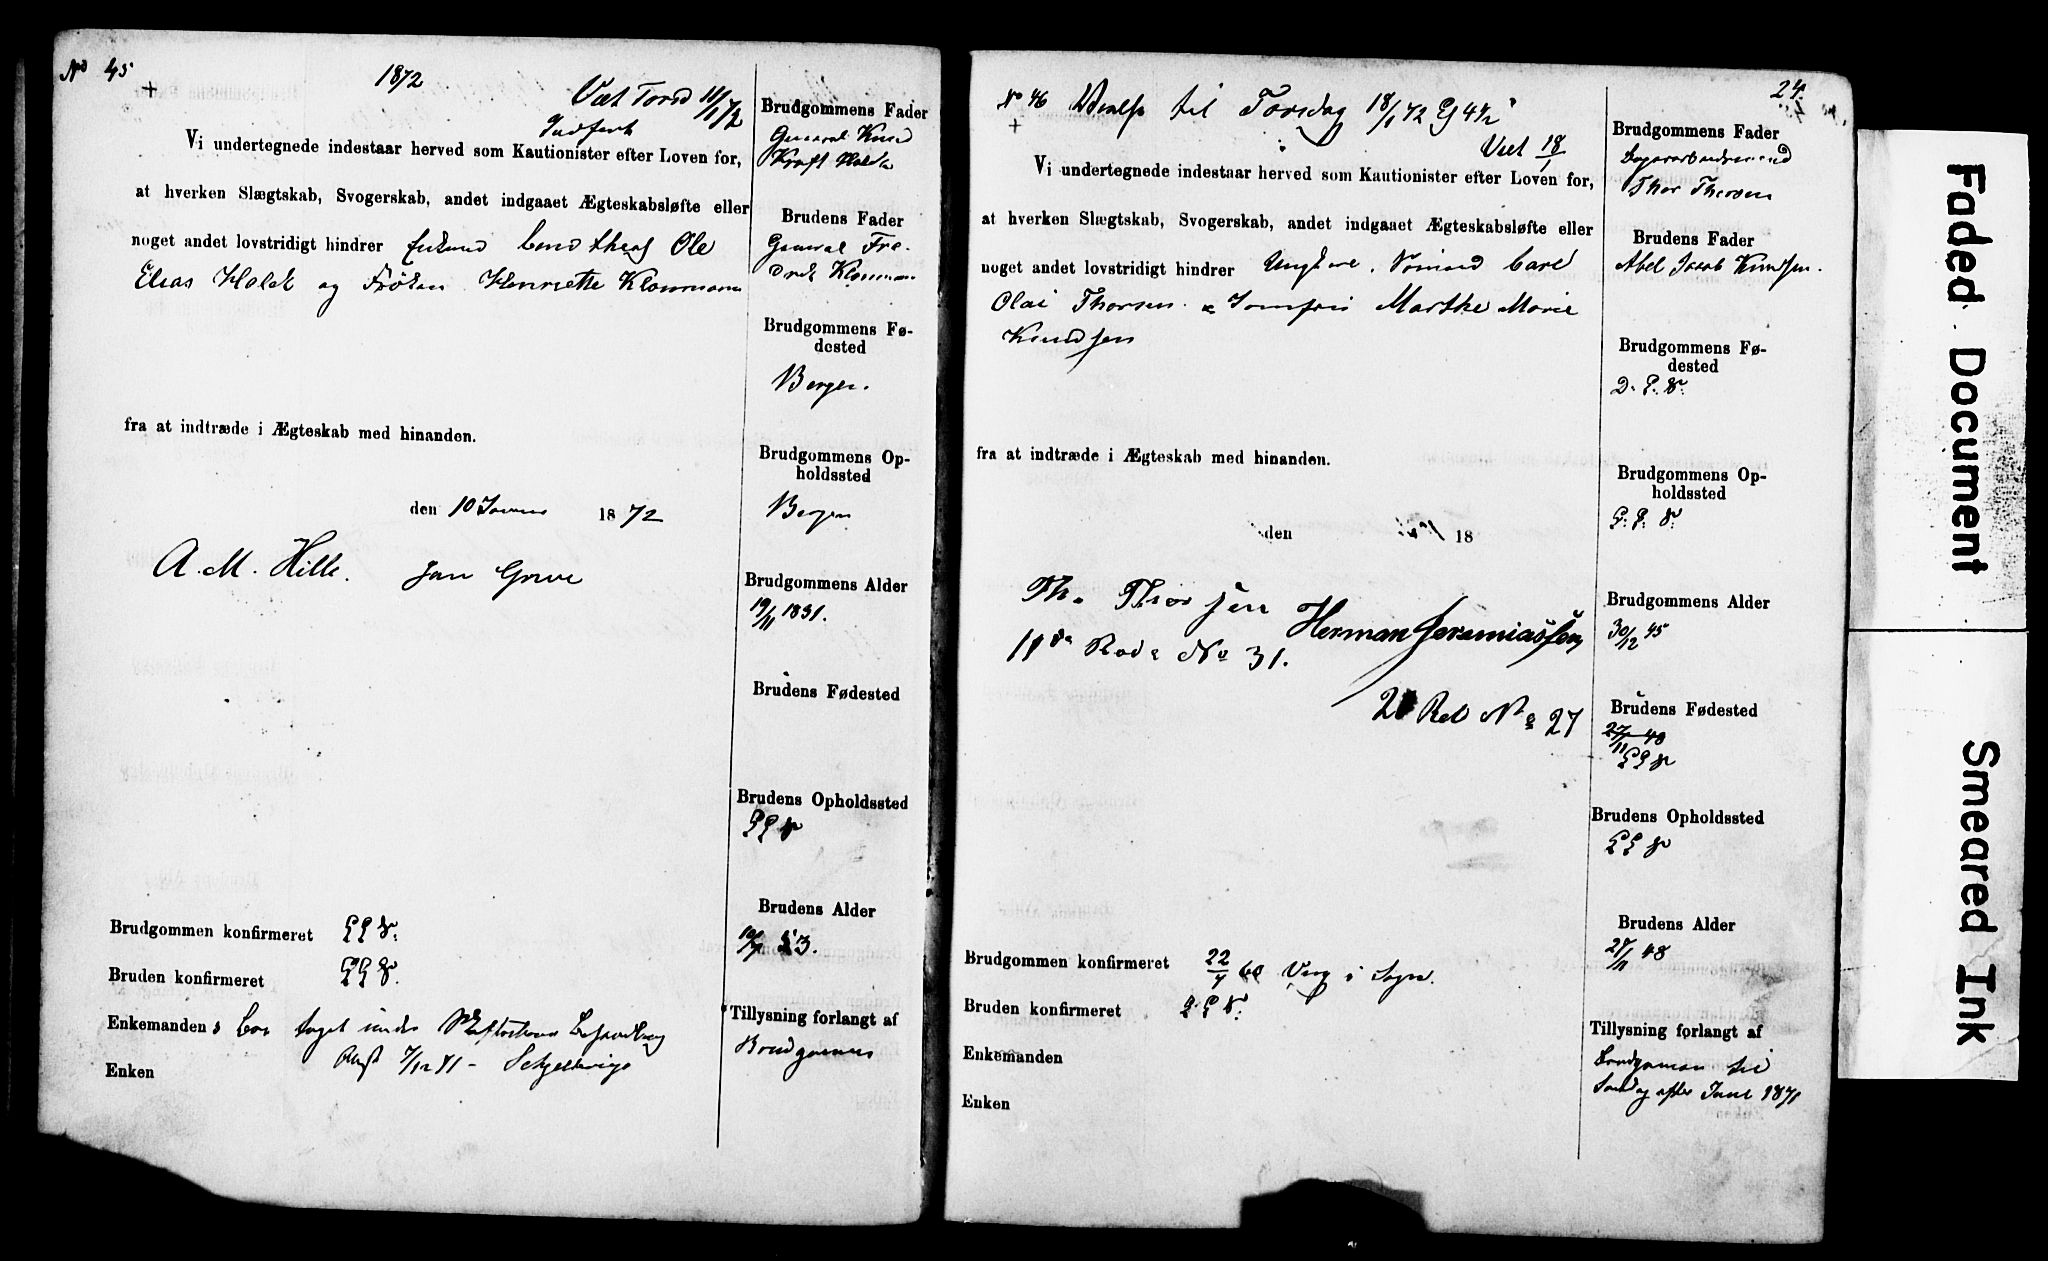 No 45
1872
Viet Torsd 11/1 72
Indført
Vi undertegnede indestaar herved som Kautionister efter Loven for,
at hverken Slægtskab, Svogerskab, andet indgaaet Ægteskabsløfte eller
noget andet lovstridigt hindrer Enkemd Cand theol Ole
Elias Holck og Frøken Henriette Klouman
fra at indtræde i Ægteskab med hinanden.
den 10 Januar 1872
A. M. Hille. Jan Greve
Brudgommen konfirmeret
Bruden konfirmeret
Enkemanden har taget under Skifterettens Behandling
Enken
Brudgommens Fader
General Knud
Holck
Brudens Fader
General Fre-
drik Klouman
Brudgommens Fø-
dested
Bergen.
Brudgommens Op-
holdssted
Bergen
Brudgommens Alder
19/11 1831.
Brudens Fødested
Brudens Opholdssted
Brudens Alder
53.
Tillysning forlangt af
Brudgommen
24.
No 46 til Torsdag 18/1 72 Kl 4½
Viet 18/1
Vi undertegnede indestaar herved som Kautionister efter Loven for,
at hverken Slægtskab, Svogerskab, andet indgaaet Ægteskabsløfte eller
noget andet lovstridigt hindrer Ungkarl Sømand Carl
Olai Thorsen & Jomfru Marthe Marie
Knudsen
fra at indtræde i Ægteskab med hinanden.
den 18
Th. Thorsen Herman Jeremiassen
11te Rode No 31.
2 Rod No 27
Brudgommen konfirmeret 22/4 60 i Sogn.
Bruden konfirmeret
Enkemanden
Enken
Brudgommens Fader
Thor Thorsen
Brudens Fader
Abel Jacob Knudsen.
Brudgommens Fø-
dested
Brudgommens Op-
holdssted
Brudgommens Alder
30/12 45
Brudens Fødested
27/11 48
Brudens Opholdssted
Brudens Alder
27/11 48
Tillysning forlangt af
Brudgommen til
Søndag efter Juul 1871
Faded Document
Smeared Ink